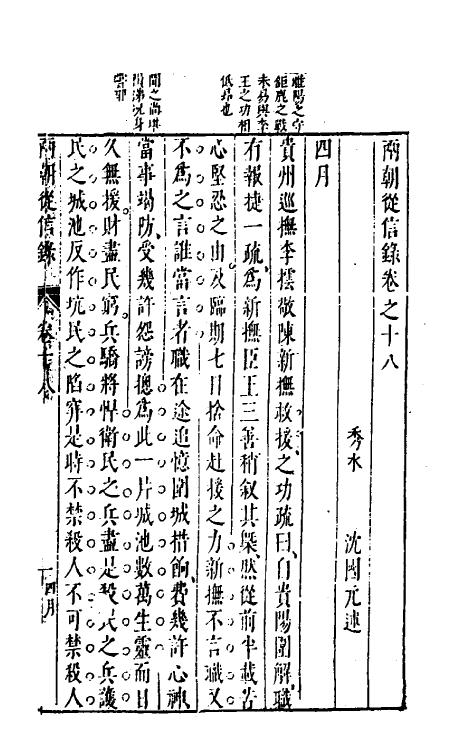 雎陽之守
鉅鹿之戰
未易與李
王之功相
低昂也
聞之尚堪
隕涕況身
嘗耶
兩朝從信錄卷之十八
秀水 沈國元述
四月
貴州巡撫李橒敬陳新撫救援之功疏曰自貴陽圍解職
有報捷一疏爲新撫臣王三善稍叙其槩然從前半載苦
心堅忍之由及臨期七日捨命赴援之力新撫不言職又
不爲之言誰當言者職在途追憶圍城措餉費幾許心神
當事堨防受幾許怨謗摠爲此一片城池數萬生靈而日
久無援財盡民窮兵驕將悍衛民之兵盡是殺民之兵護
民之城池反作坑民之陷穽是時不禁殺人不可禁殺人
兩朝從信錄
卷十八
四月
一